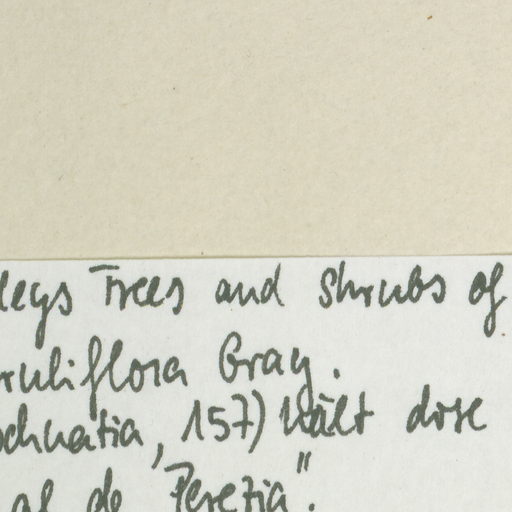 leys Trees and shrubs of
ruliflora Gray.
ochnatia, 157) hält diese
al de Perezia".